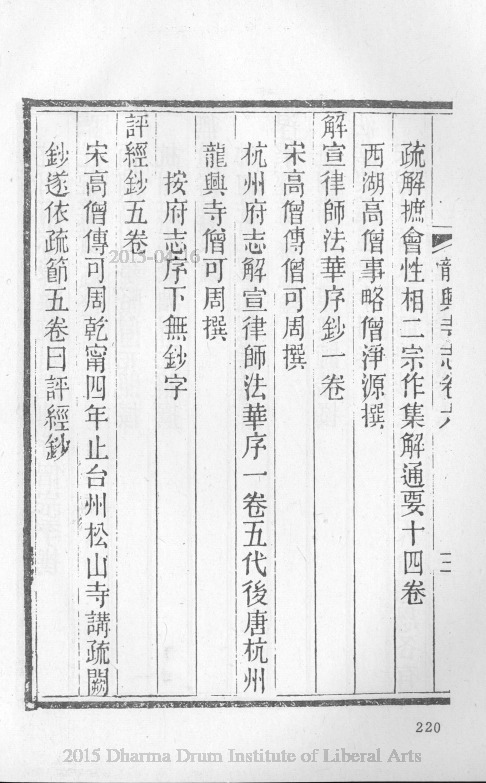 龍興寺志卷六
三
疏解摭會性相二宗作集解通要十四卷
西湖高僧事略僧淨源撰
解宣律師法華序鈔一卷
宋高僧傳僧可周撰
杭州府志解宣律師法華序一卷五代後唐杭州
龍興寺僧可周撰
按府志序下無鈔字
評經鈔五卷
宋高僧傳可周乾甯四年止台州松山寺講疏闕
鈔遂依疏節五卷曰評經鈔
220
2015 Dharma Drum Institute of Liberal Arts